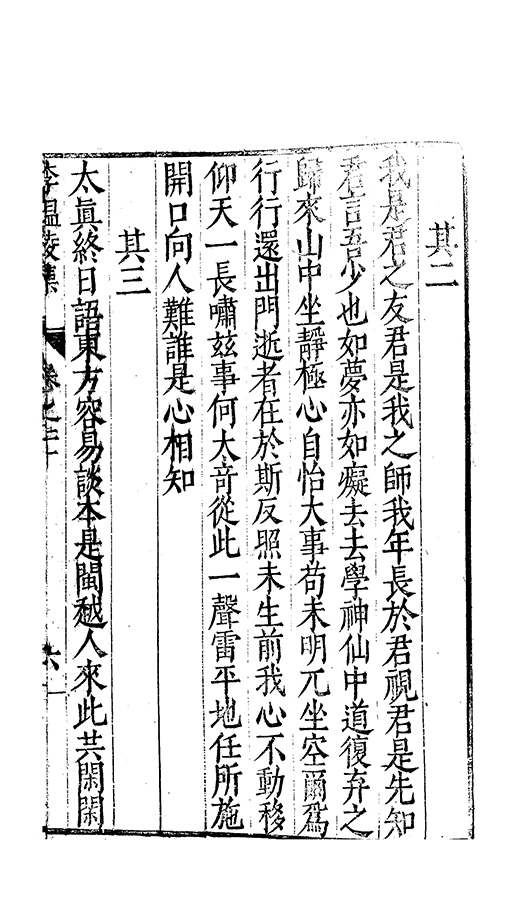 其二
我是君之友君是我之師我年長於君視君是先知
君言吾少也如夢亦如癡去去學神仙中道復弃之
歸來山中坐靜極心自怡大事苟未明兀坐空爾爲
行行還出門逝者在於斯反照未生前我心不動移
仰天一長嘯兹事何太奇從此一聲雷平地任所施
開口向人難誰是心相知
其三
太眞終日語東方容易談本是閩越人來此共閑閑
李温陵集
卷之二
六